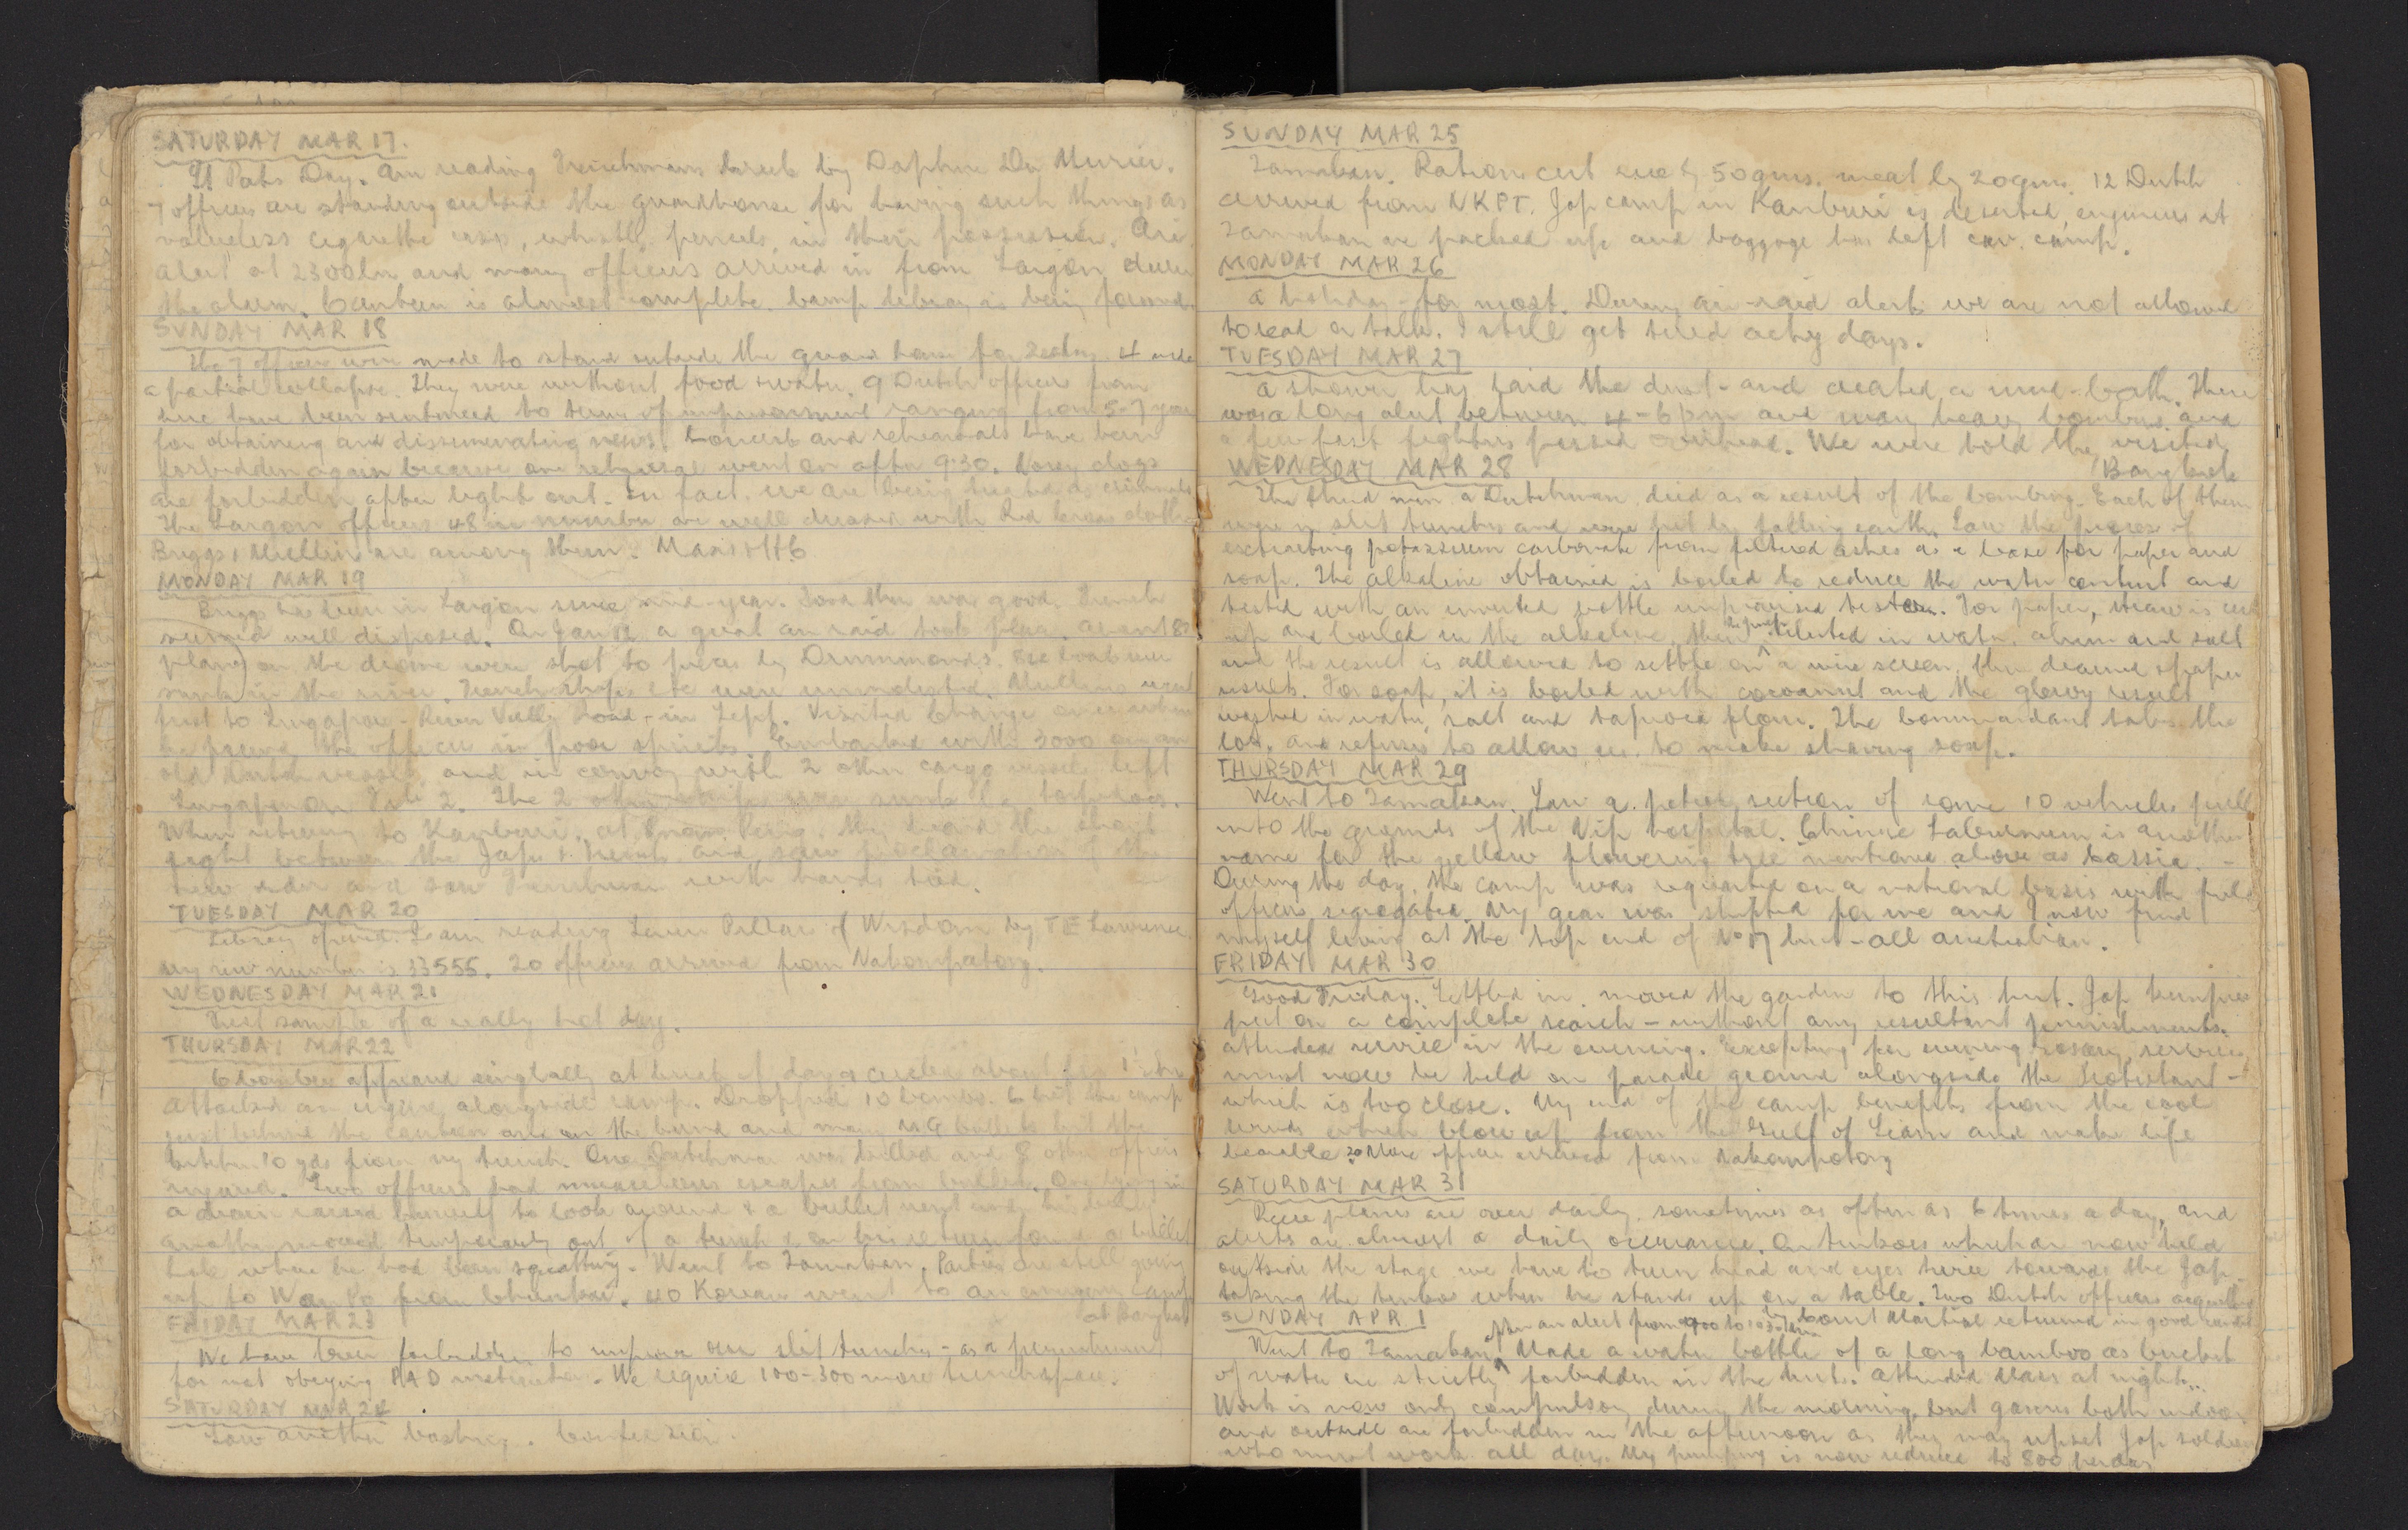 SATURDAY MAR 17.
St Pats Day. Am reading Frenchmans Creek by Daphne Du Murier.
7 officers are standing outside the guardhouse for having such things as
valueless cigarette cases, whistle, pencils, in their possession. Air
alert at 2300hrs and many officers arrived in from Saigon during
the alarm. Canteen is almost complete. Camp library is being formed.
SUNDAY MAR 18
The 7 officers were made to stand outside the guard house for 2 days. 4 under
a partial collapse. They were without food & water. 9 Dutch officers from
here have been sentenced to terms of imprisonment ranging from 5-7 years
for obtaining and disseminating news. Concerts and rehearsals have been
forbidden again because one rehearsal went on after 9:30. Noisy clogs
are forbidden after light out. In fact, we are being treated as criminals.
The Saigon officers 48 in number are well dressed with Red Cross clothing
Briggs & Mullin are among them. Mass
MONDAY MAR 19
Briggs has been in Saigon since mid-year. Food there was good. French
seemed well disposed. On Jan 12 a great air raid took place. About 80
planes on the drome were shot to pieces by Drummonds. boats were
sunk in the river. French ships etc were unmolested. Mullins went
first to Singapore - River Vally Road - in Sept. Visited Change on occasions
he found the officers in poor spirits. Embarked with 3000 on an
old Dutch vessel and in convoy with 2 other cargo vessels left
Singapore on Feb 2. The 2 other were sunk by torpedoes.
When returning to Kanburi, at Pnom Peng, they heard the short
fight between the Japs & French and saw proclamation of the
new order and saw Frenchmen with hands tied.
TUESDAY MAR 20
Library opened. I am reading Seven Pillars of Wisdom by TE Lawrence.
My new number is 33555. 20 officers arrived from Nakompatong.
WEDNESDAY MAR 21
First sample of a really hot day.
THURSDAY MAR 22
6 bombers appeared singly at break of day & circled about for 1 hr
Attacked an engine alongside camp. Dropped 10 bombs. 6 hit the camp
just behind the canteen and on the bund and many MG bullets hit the
kitchen 10 yds from my trench. One Dutchman was killed and 8 other officers
injured. Two officers had miraculous escapes from bullets. One lying in
a drain raised himself to look around & a bullet went under his belly
another moved temporarily out of a trench & on his return found a bullet
hole where he had been squatting. Went to Tamakan. Parties are still going
up to Wampo from Chunkai. 40 Koreans went to an camp
at Bangkok
FRIDAY MAR 23
We have been forbidden to improve our slit trenches - as a punishment
for not obeying PAD instruction. We require 100-300 more trenchspace.
SATURDAY MAR 24
Saw another bashing. Confession.
SUNDAY MAR 25
Tamakan. Rations cut rice by 50gms. meat by 20gms. 12 Dutch
arrived from NKPT. Jap camp in Kanburi is deserted, engineers at
Tamakan are packed up and baggage has left cav. camp.
MONDAY MAR 26
A holiday - for most. During air-raid alerts we are not allowed
to read or talk. I still get tired achy days.
TUESDAY MAR 27
A shower has laid the dust - and created a mud-bath. There
was a long alert between 4-6 pm and many heavy bombers and
a few fast fighters passed overhead. We were told they visited
Bangkok
WEDNESDAY MAR 28
The third man a Dutchman died as a result of the bombing. Each of them
were in slit trenches and were hit by falling earth. Saw the process of
extracting potassium carbonate from filtered ashes as a base for paper and
soap. The alkaline obtained is boiled to reduce the water content and
tested with an inverted bottle improvised tester. For paper, straw is cut
up and boiled in the alkaline, then the pulp diluted in water, alum and salt
and the result is allowed to settle on a wire screen, then drained & paper
results. For soap, it is boiled with cocoanut and the gluey result
washed in water, salt and tapioca flour. The Commandant takes the
lot, and refuses to allow us to make shaving soap.
THURSDAY MAR 29
Went to Tamakan. Saw a petrol section of some 10 vehicles pull
into the grounds of the Nip hospital. Chinese Laburnum is another
name for the yellow flowering tree mentioned above as Cassia. -
During the day, the camp was regrouped on a national basis with field
officers segregated. My gear was shifted for me and I now find
myself living at the top end of No 17 hut - all australian.
FRIDAY MAR 30
Good Friday. Settled in. moved the garden to this hut. Jap kempies
put on a complete search - without any resultant punishments.
Attended service in the evening. Excepting for evening rosary, services
must now be held on parade ground alongside the Protestant -
which is too close. My end of the camp benefits from the cool
winds which blow up from the Gulf of Siam and make life
bearable. 20 More officers arrived from Nakompatong
SATURDAY MAR 31
Recce planes are over daily, sometimes as often as 6 times a day, and
alerts are almost a daily occurance. On tenkoes which are now held
outside the stage we have to turn head and eyes twice towards the Jap
taking the tenko when he stands up on a table. Two Dutch officers acquitted
by Court Martial returned in good health
SUNDAY APR 1
after an alert from 0900 to 1030hrs
Went to Tamakan. Made a water bottle of a long bamboo as bucket
of water are strictly forbidden in the huts. Attended Mass at night.
Work is now only compulsory during the morning, but games both indoor
and outside are forbidden in the afternoon as they may upset Jap soldiers
who must work all day. My pumping is now reduced to 800 per day